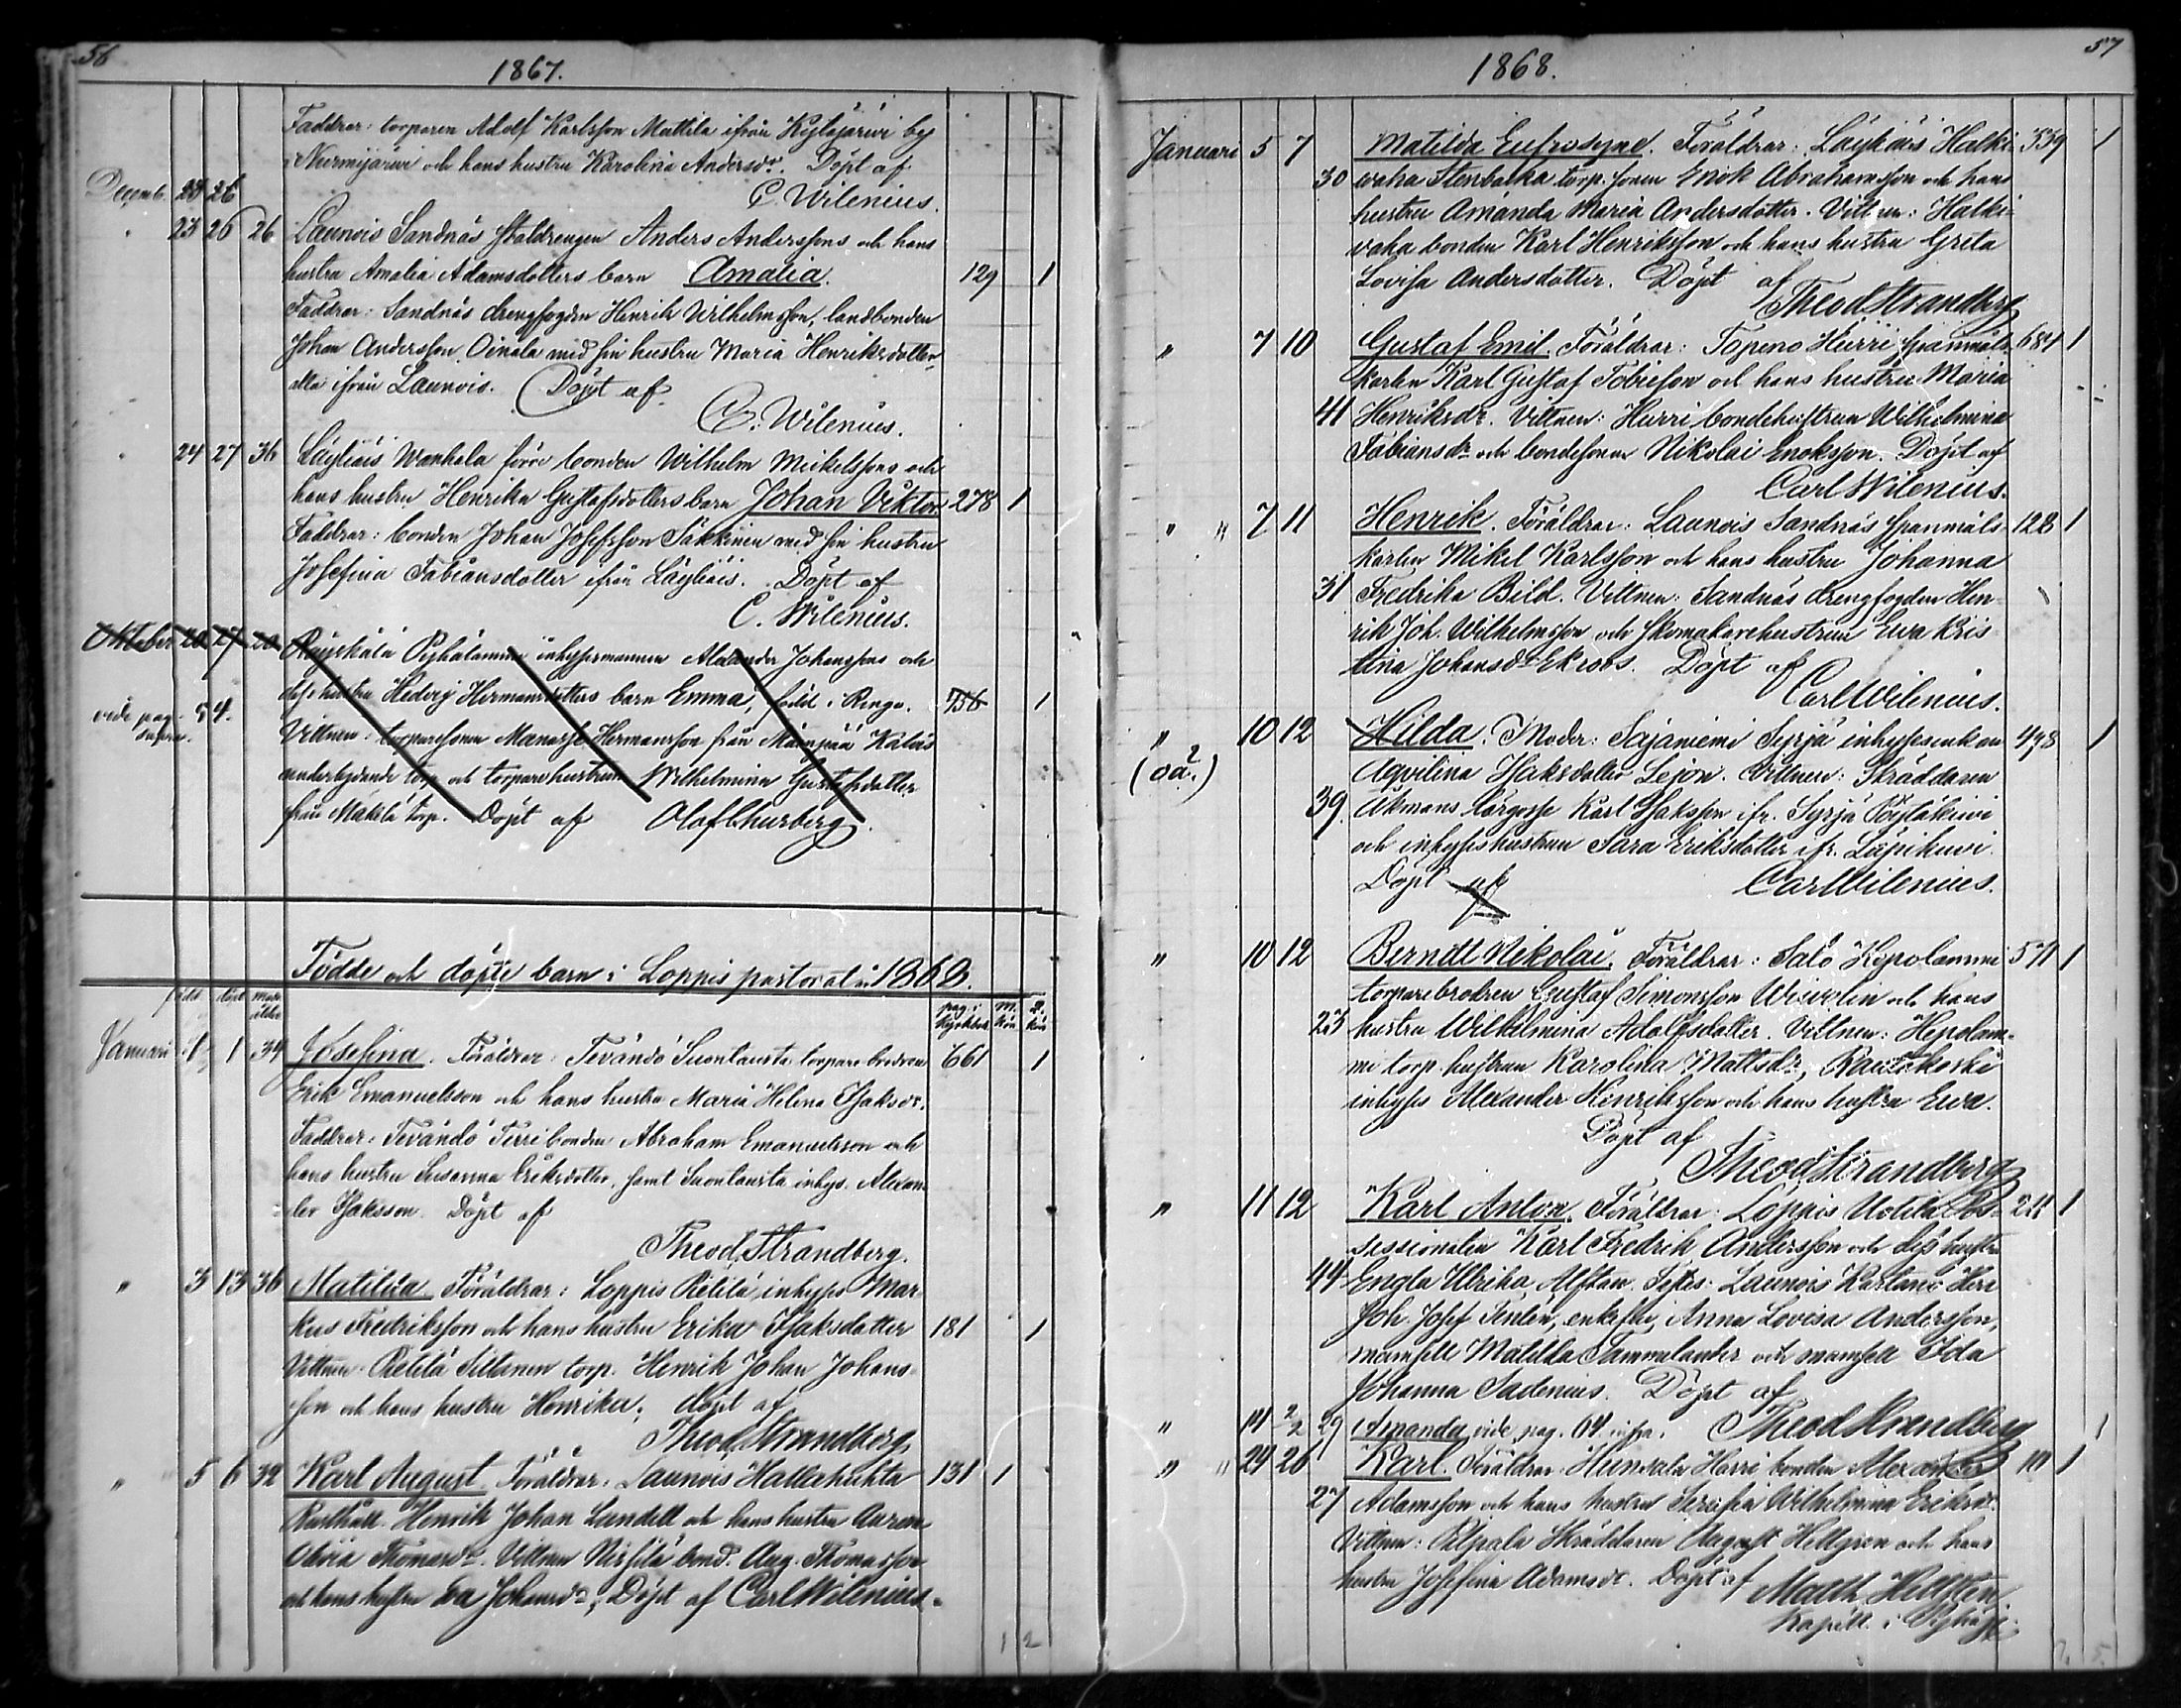 56
1867.
Faddrar: torparen Adolf Karlsson Mattila ifrån Kytäjärvi by
i Nurmijärvi och hans hustru Karolina Andersdr. Döpt af
Decemb. 23 26
C. Wilenius.
" 23 26 26 Launois Sandnäs staldrengen Anders Anderssons och hans
hustru Amalia Adamsdotters barn Amalia. 129 1
Faddrar: Sandnäs drengfogden Henrik Wilhelmsson, landbonden
Johan Andersson Oinala med sin hustru Maria Henriksdotter,
alla ifrån Launois. Döpt af
C. Wilenius.
" 24 27 36 Läyliäis Wanhala förre bonden Wilhelm Mickelssons och
hans hustru Henrika Gustafsdotters barn Johan Viktor 278 1
Faddrar: bonden Johan Josefsson Säkkinen med sin hustru
Josefina Fabiansdotter ifrån Läyliäis. Döpt af
C. Wilenius.
Oktober 20 27 20 Räyskälä Pyhälammi inhysesmannen Alexander Johanssons och
dess hustru Hedvig Hermansdotters barn Emma, född i Rengo. 756 1
vide pag. 54.
supra.
Vittnen: torparesonen Manasse Hermansson från
underlydande torp och torparehustrun Wilhelmina Gustafsdotter
från Mäkelä torp. Döpt af Olof Churberg.
Födde och döpte barn i Loppis pastorat år 1868.
född döpt moders ålder pag. i Kyrkbok M. kön Q. kön
Januari 1 1 34 Josefina. Föräldrar: Tevändö Suontausta torpare brodren 661 1
Erik Emanuelsson och hans hustru Maria Helena Isaksdr.
Faddrar: Tevändö Terri bonden Abraham Emanuelsson och
hans hustru Susanna Eriksdotter, samt Suontausta inhys. Alexan-
der Isaksson. Döpt af
Theod. Strandberg.
" 3 13 36 Matilda Föräldrar: Loppis Pietilä inhyses Mar-
kus Fredriksson och hans hustru Erika Isaksdotter 181 1
Vittnen: Pietilä Siltanen torp. Henrik Johan Johans-
son och hans hustru Henrika; döpt af
Theod. Strandberg
" 5 6 32 Karl August Föräldrar: Launois Hallahuhta 131 1
Rusthåll. Henrik Johan Lundell och hans hustru
Olivia Thomasdr. Vittnen bond. Aug. Thomasson
och hans hustru Eva Johansdr; Döpt af Carl Wilenius.
1 2
57
1868.
Januari 5 7 Matilda Eufrosyne. Föräldrar: Läyliäis Halki- 339 1
30 vaha Stenbacka torp. sonen Enok Abrahamsson och hans
hustru Amanda Maria Andersdotter. Vittnen: Halki-
vaha bonden Karl Henriksson och hans hustru Greta
Lovisa Andersdotter. Döpt af
Theod Strandberg
" 7 10 Gustaf Emil. Föräldrar: Topeno Hürri spanmåls- 681 1
karlen Karl Gustaf Tobiesson och hans hustru Maria
41 Henriksdr. Vittnen: Hurri bondehustrun Wilhelmina
Fabiansdr och bondesonen Nikolai Enoksson. Döpt af
Carl Wilenius.
" " 7 11 Henrik. Föräldrar: Launois Sandnäs spanmåls- 128 1
karlen Mikel Karlsson och hans hustru Johanna
31 Fredrika Bild. Vittnen: Sandnäs drengfogden Hen-
rik Joh. Wilhelmsson och skomakarehustrun Eva Kris-
tina Johansdr Ekroos. Döpt af
Carl Wilenius.
" 10 12 Hilda. Moder: Sajaniemi Syrjä inhysesenkan 498 1
(oä.) Aqvilina Isaksdotter Lejon. Vittnen: Skräddaren
39. Åkmans lärgosse Karl Isaksson ifr. Syrjä Pöytäkivi
och inhyseshustrun Sara Eriksdotter ifr. Läpikivi.
Döpt af Carl Wilenius.
" 10 12 Berndt Nikolai. Föräldrar: Salo Hepolammi 571 1
torparebrodren Gustaf Simonsson Wiivolin och hans
23 hustru Wilhelmina Adolfsdotter. Vittnen: Hepolam-
mi torp. hustrun Karolina Mattsdr, Rautakoski
inhyses Alexander Henriksson och hans hustru Eva.
Döpt af
Theod Strandberg
" 11 12 Karl Anton. Föräldrar: Loppis Uotila Pos- 211 1
sessionaten Karl Fredrik Andersson och dess hustru
44 Engla Ulrika Alftan. Testes: Launois Kartano Herr
Joh. Josef enkefru Anna Lovisa Andersson,
mamsell Matilda Tammelander och mamsell Ida
Johanna Sadenius. Döpt af
" 14 2/2 29 Amanda vide pag. 64 infra. Theod Strandberg 1
" " 24 26 Karl. Föräldrar: Hunsala Harri bonden Alexander 10 1
27 Adamsson och hans hustru Serafia Wilhelmina Eriksdr.
Vittnen: Pilpala Skräddaren August Hellgren och hans
hustru Josefina Adamsdr. Döpt af
Kapell. i
2. 5.